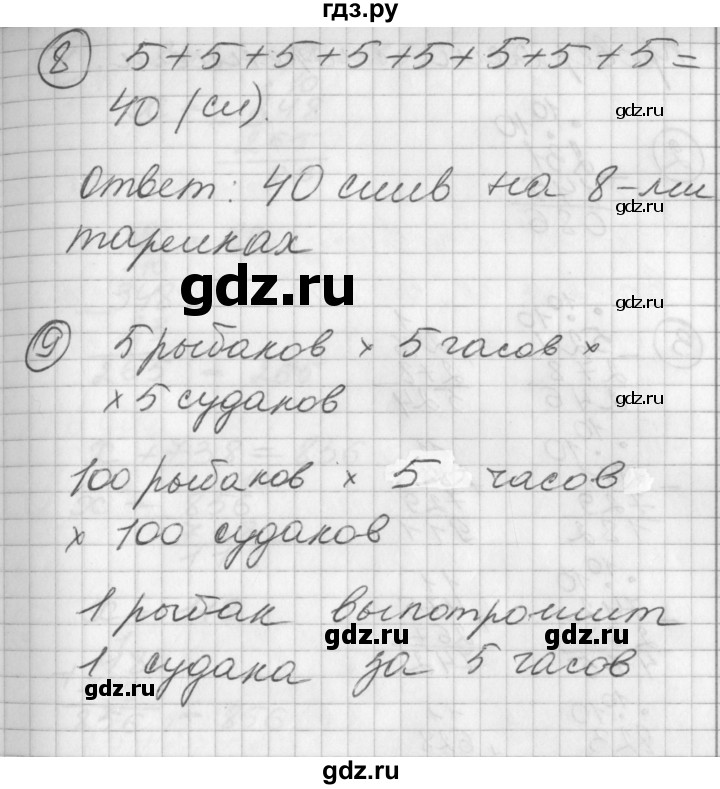 гдз.ру
⑧ 5+5+5+5+5+5+5+5=
40 (сл).
gdz.ru
Ответ: 40 слив на 8-ми
gdz.ru
тарелках
gdz.ru
gdz.ru
⑨ 5 рыбаков × 5 часов ×
× 5 судаков
gdz.ru
100 рыбаков × 5 часов
× 100 судаков
1 рыбак выпотрошит
gdz.ru
gdz.ru
1 судака за 5 часов
gdz.ru
gdz.ru